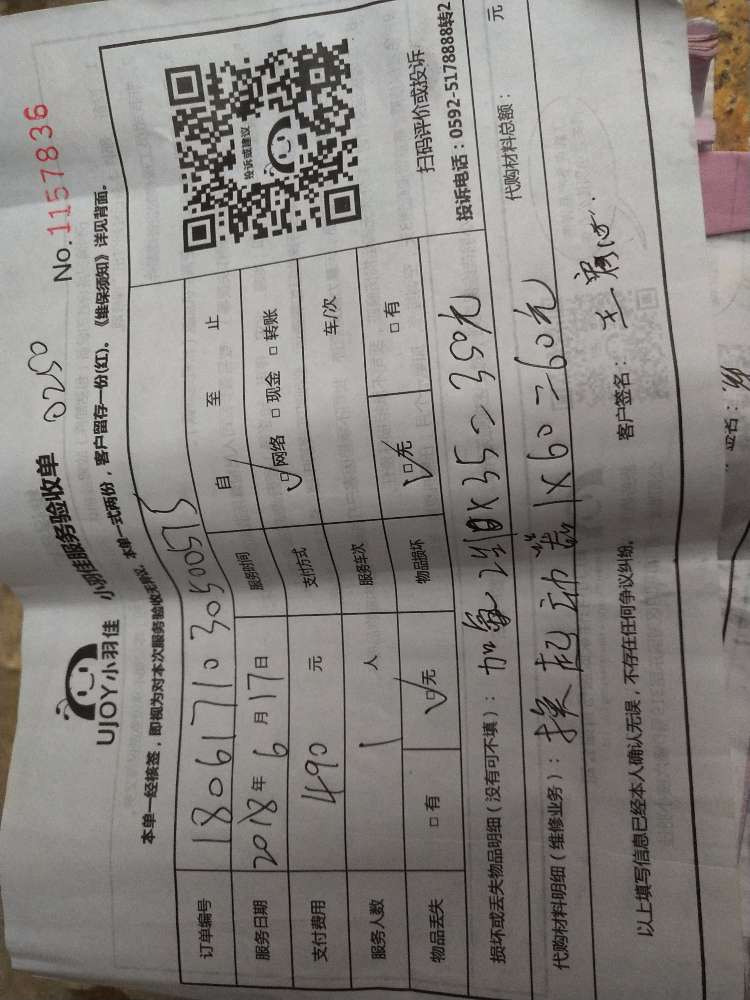 No.1157836
UJOY小羽佳 小羽佳服务验收单 0250
本单一经核签，即视为对本次服务验收 本单一式两份，客户留存一份(红)。《维保须知》详见背面。
订单编号 180617103050057
服务日期 2018年6月17日 服务时间 自 至 止
支付费用 490 元 支付方式 ☑网络 □现金 □转账
服务人数 1 人 服务车次 车/次
物品丢失 □有 ☑无 物品损坏 ☑无 □有
投诉或建议
扫码评价或投诉
投诉电话：0592-5178888转2
损坏或丢失物品明细（没有可不填）： 加氟 X35=350元
代购材料明细（维修业务）： 换起动器1X60=60元 代购材料总额： 元
以上填写信息已经本人确认无误，不存在任何争议纠纷。 客户签名： 王
签名：